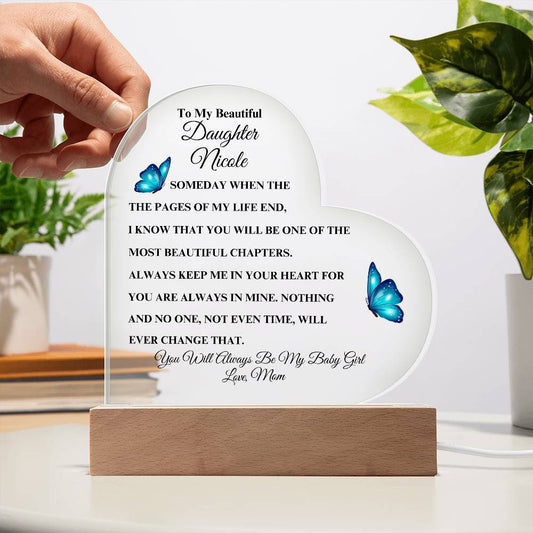 To My Beautiful
Daughter
Nicole
SOMEDAY WHEN THE
THE PAGES OF MY LIFE END,
I KNOW THAT YOU WILL BE ONE OF THE
MOST BEAUTIFUL CHAPTERS.
ALWAYS KEEP ME IN YOUR HEART FOR
YOU ARE ALWAYS IN MINE. NOTHING
AND NO ONE, NOT EVEN TIME, WILL
EVER CHANGE THAT.
You Will Always Be My Baby Girl
Love, Mom